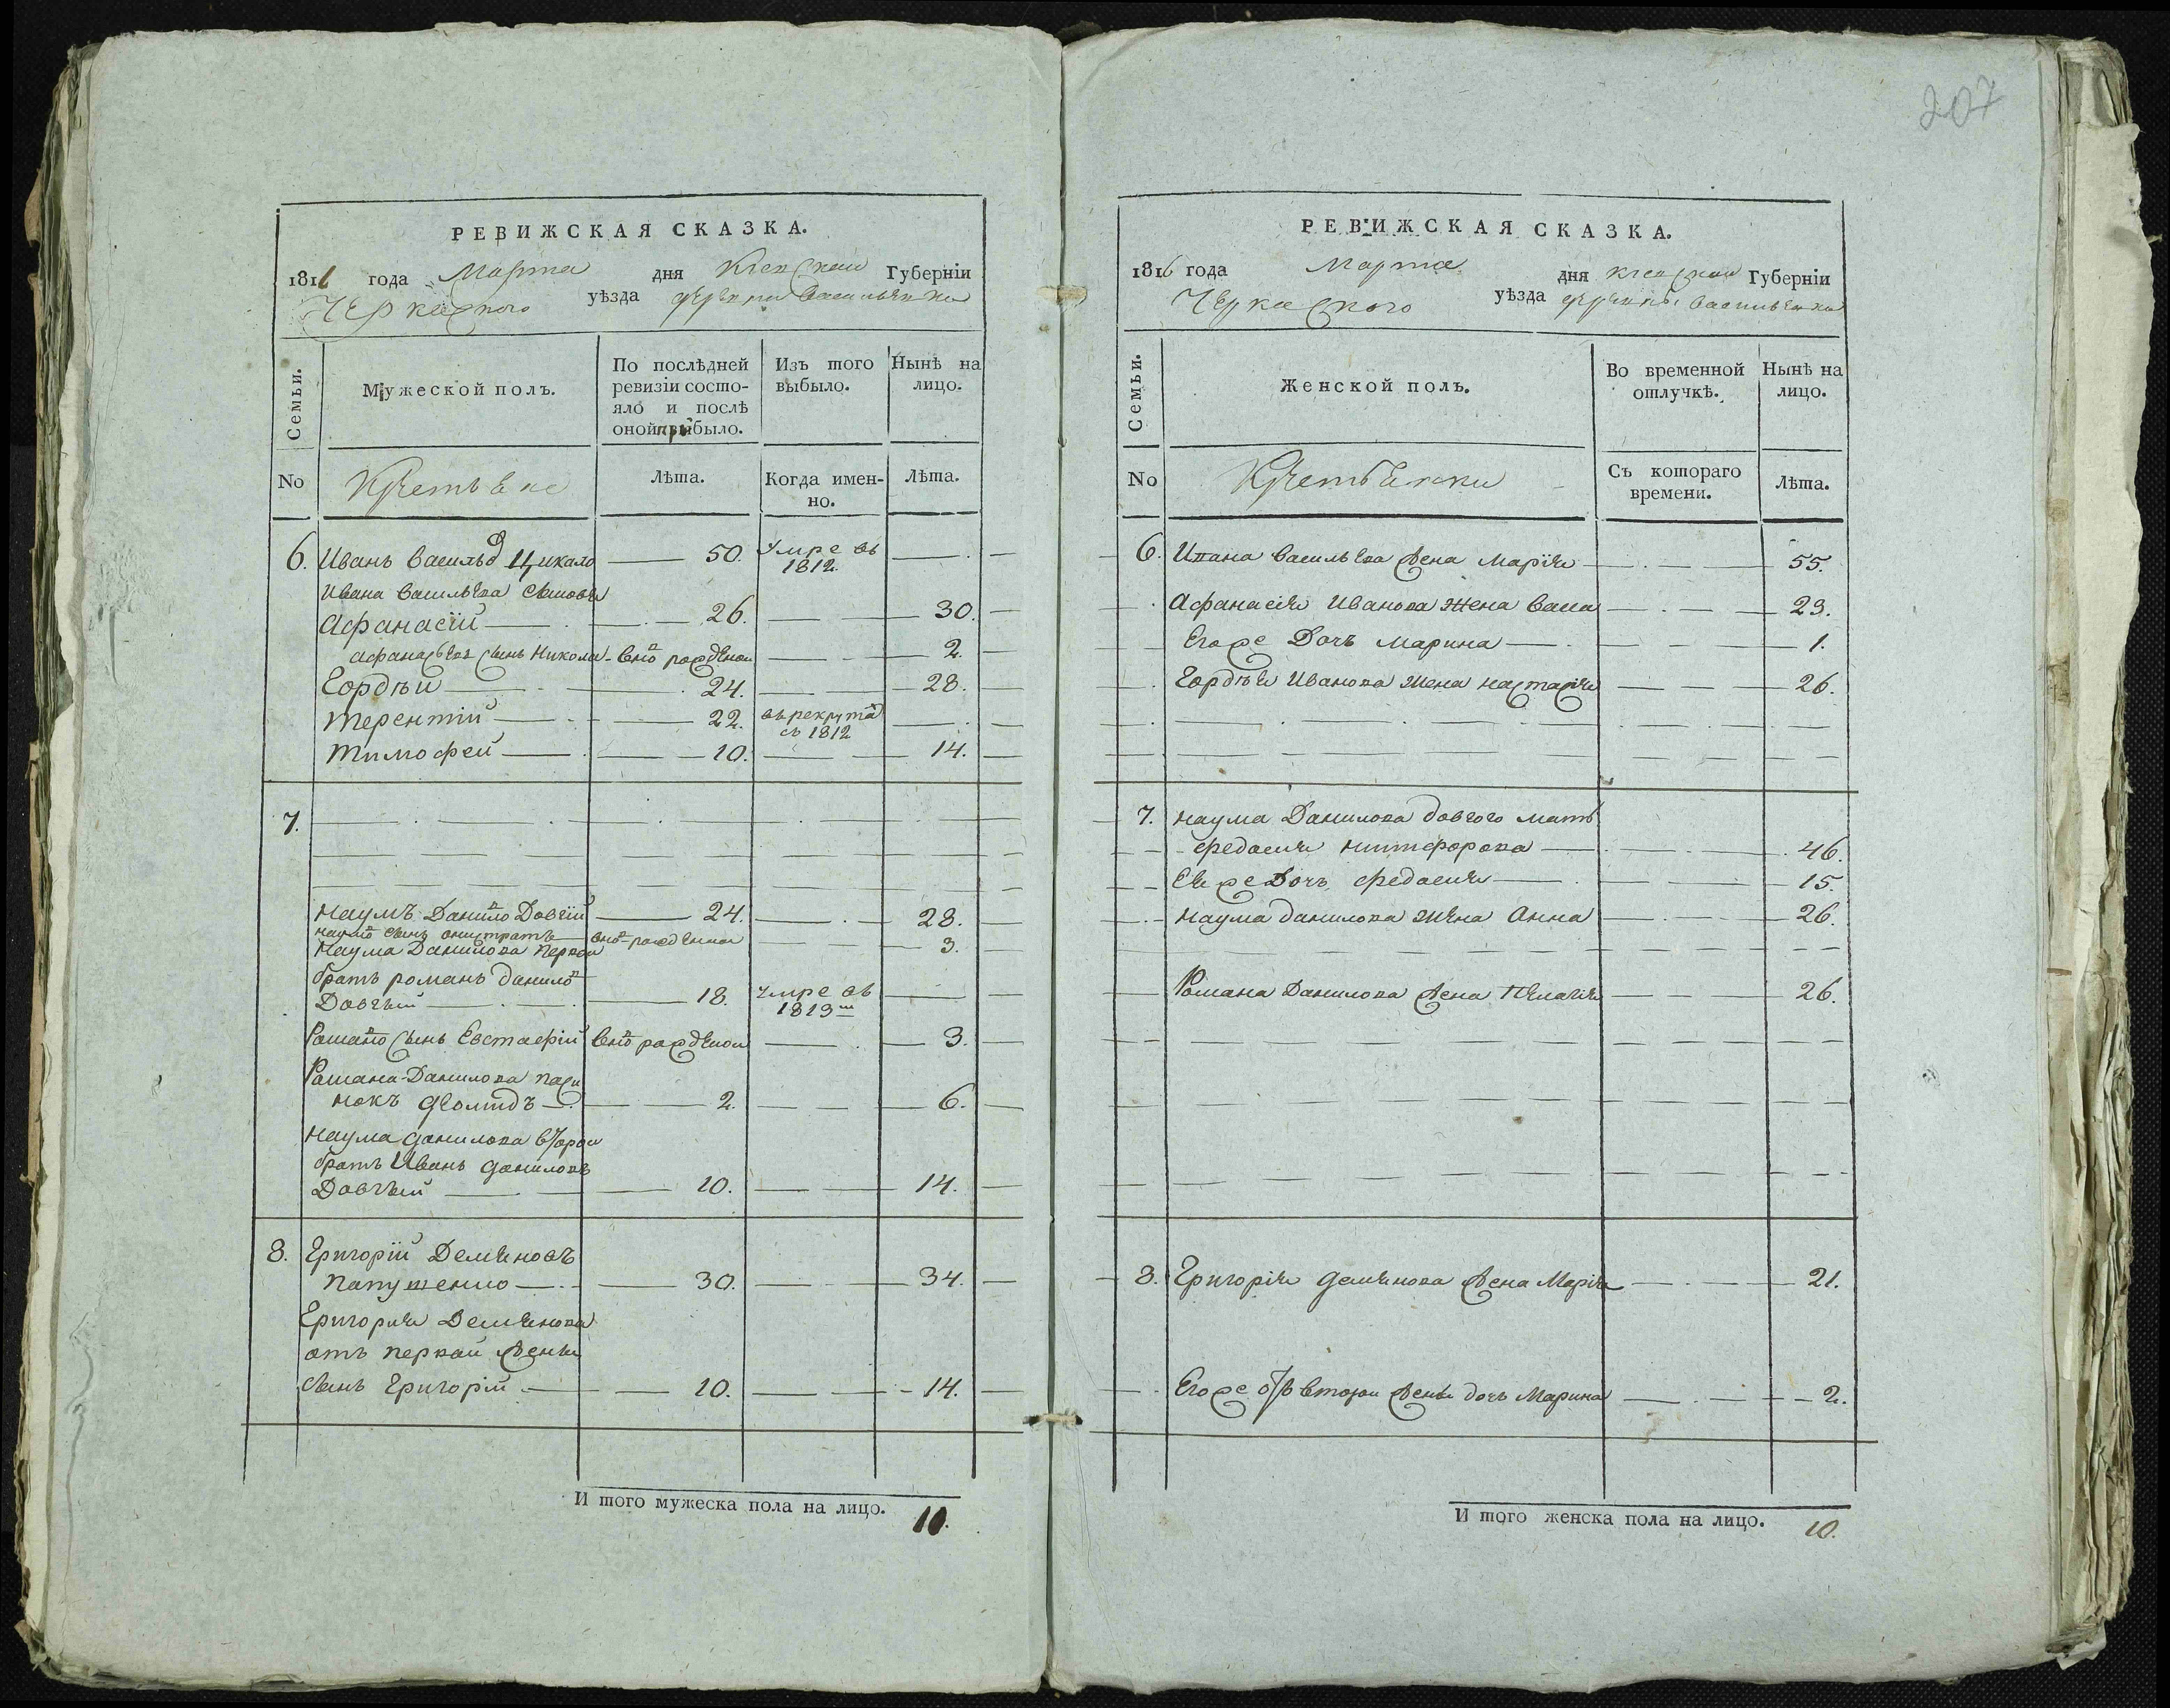 207
РЕВИЖСКАЯ СКАЗКА.
1816 года Марта дня Киевской Губерніи
Черкаского уѣзда деревни Васильевки
Семьи.
Мужеской полъ.
По послѣдней ревизіи состо-
яло и послѣ
оной прибыло.
Изъ того
выбыло.
Нынѣ на
лицо.
No
Лѣта.
Когда имен-
но.
Лѣта.
6. Иванъ Васильѣв Цикало 50. Умре въ 1812.
Ивана Васильева сыновья
Афанасій 26. 30.
Афанасьевъ сынъ Никола вно рожденои 2.
Гордѣй 24. 28.
Терентій 22. въ рекрута съ 1812
Тимофей 10. 14.
7.
Наумъ Данило Довгій 24. 28.
Наумо сынъ онистратъ вно рожденои 3.
Наума Данилова первои
братъ романъ данило
Довгъй 18. умре въ 1813
Романо сынъ Евстафій вно рожденои 3.
Романа Данилова паси
нокъ Леонидъ 2. 6.
Наума данилова второи
братъ Иванъ даниловъ
Довгъй 10. 14.
8. Григорій Демяновъ
Папушенко 30. 34.
Григорія Демянова
отъ первой жены
сынъ Григорій 10. 14.
И того мужеска пола на лицо. 10.
РЕВИЖСКАЯ СКАЗКА.
1816 года Марта дня Киевской Губерніи
Черкаского уѣзда деревни Васильевки
Семьи.
Женской полъ.
Во временной
отлучкѣ.
Нынѣ на
лицо.
No
Съ котораго
времени.
Лѣта.
6. Ивана Васильева жена Марія 55.
Афанасія Иванова жена Васса 23.
Его же Дочъ Марина 1.
Гордѣя Иванова жена Настасія 26.
7. Наума Данилова довгого мать
Федосия Никифорова 46.
Ея же Дочъ Федосия 15.
Наума данилова жена Анна 26.
Романа Данилова жена Пелагія 26.
8. Григорія Демянова жена Марія 21.
Его же отъ второи жены дочъ Марина 2.
И того женска пола на лицо. 10.